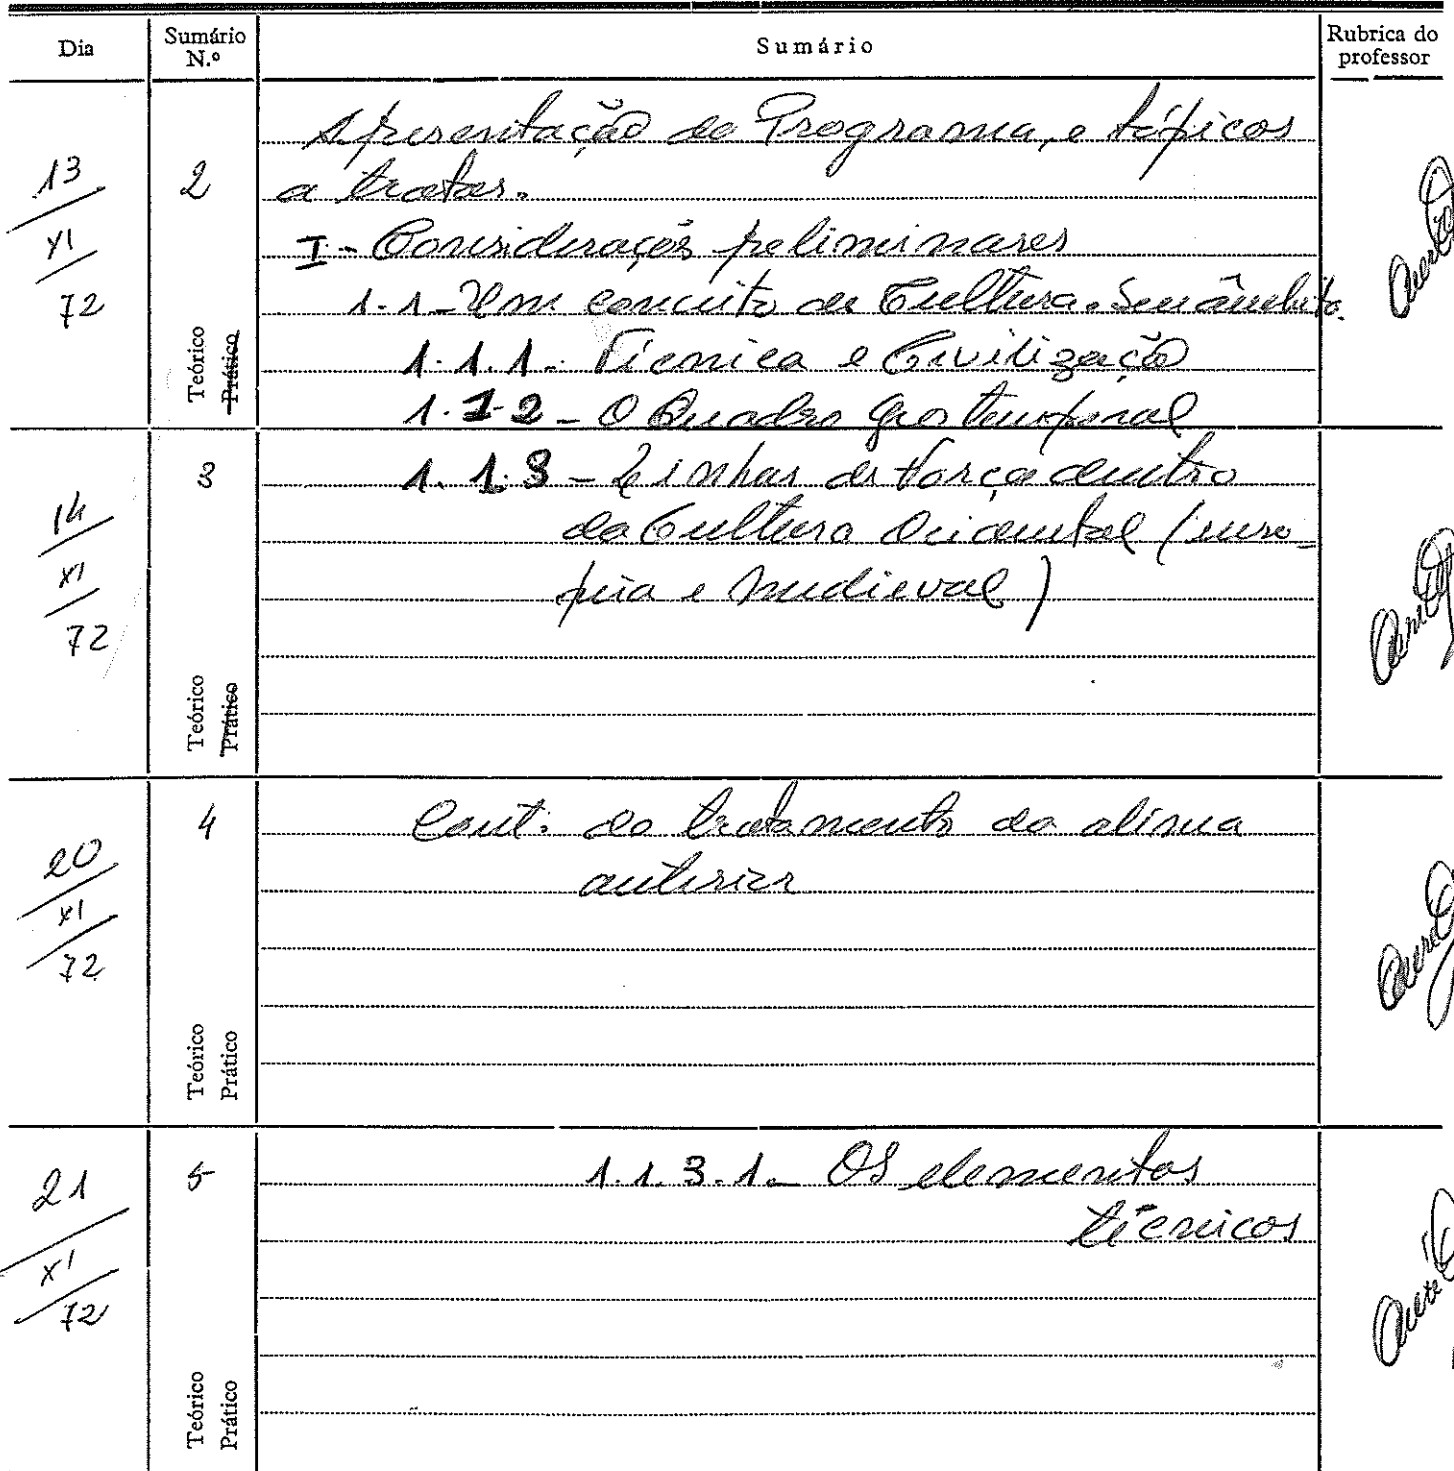 Dia
Sumário N.º
Sumário
Rubrica do professor
13/XI/72
2
Teórico
Prático
Apresentação do Programa, e tópicos
a tratar.
I - Considerações preliminares
1.1 - Um conceito de Cultura. Seu âmbito.
1.1.1. - Técnica e Civilização
1.1.2 - O Quadro geo temporal
14/XI/72
3
Teórico
Prático
1.1.3 - Linhas de Força dentro
da Cultura Ocidental (euro-
peia e medieval)
20/XI/72
4
Teórico
Prático
Cont. do tratamento da alínea
anterior
21/XI/72
5
Teórico
Prático
1.1.3.1. - Os elementos
técnicos